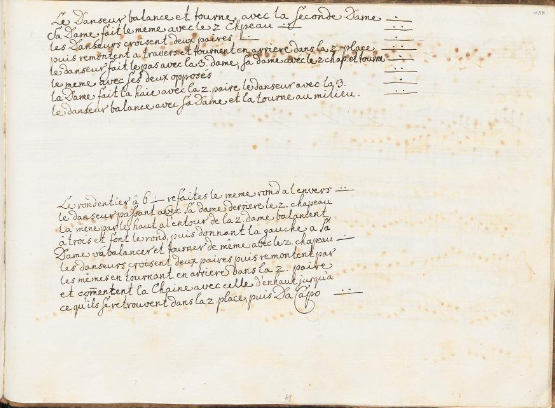 Le Danseur balance et tourne avec la seconde Dame
sa Dame fait le meme avec le 2 Chpeau
les Danseurs croisent deux paires
puis remontent a travers et tournent en arriere dans la 2 place
le danseur fait le pas avec la 3 dame, sa dame avec le 2 chap et tourne
le meme avec les deux opposés
la Dame fait la haie avec la 2. paire, le danseur avec la 3.
le danseur balance avec sa Dame et la tourne au milieu.
Le rond entier à 6 refaites le meme rond a l'envers
le danseur passant avec la dame derriere le 2. chapeau
la mene par le haut al entour de la 2. dame, balancent
à trois et font le rond, puis donnant la gauche a sa
Dame va balancer et tourner de même avec le 2. chapeau
les danseurs croisent deux paires puis remontent par
les mêmes en tournant en arriere dans la 2. paire
et comentent la Chaine avec celle d'enhaut jusqu'a
ce qu'ils se retrouvent dans la 2 place, puis Da Capo